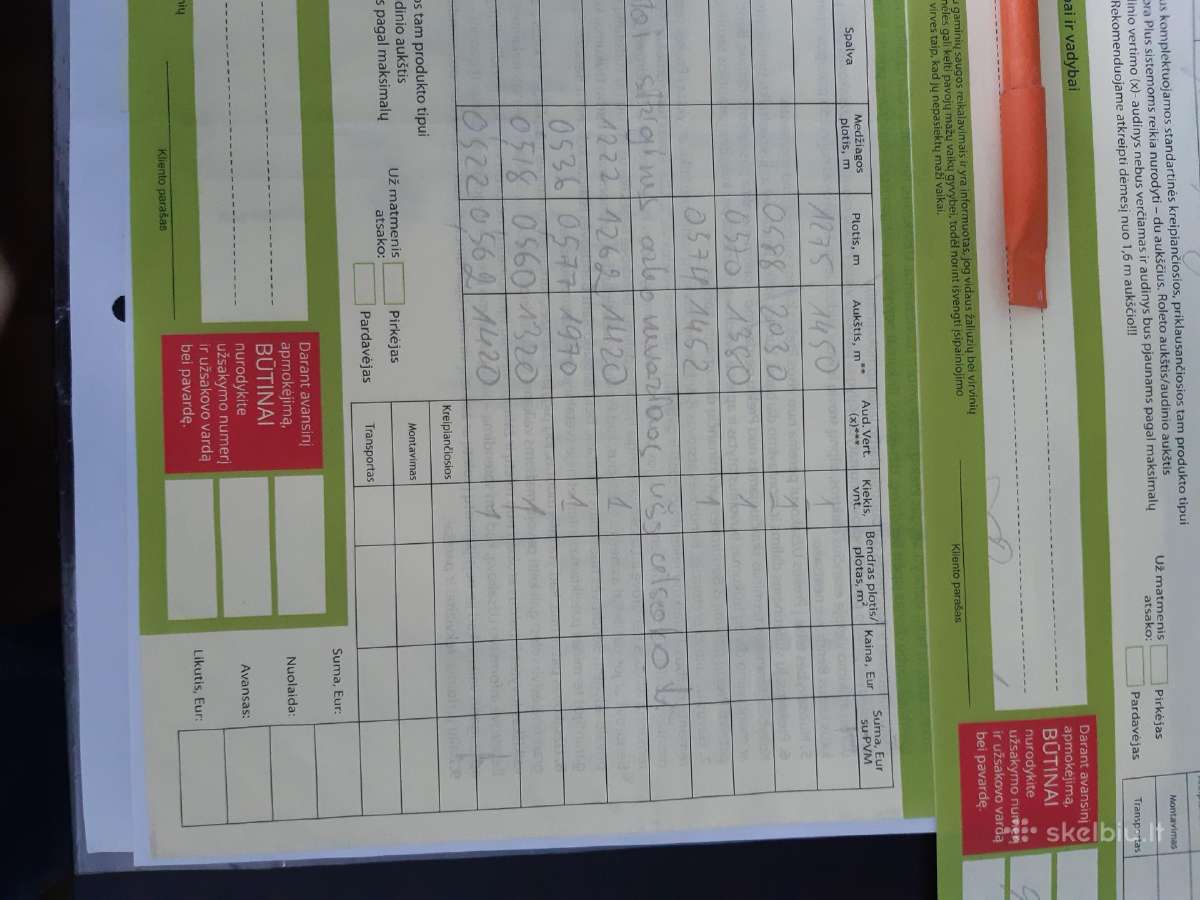 Spalva
Medžiagos plotis, m
Plotis, m
Aukštis, m **
Aud. Vert. (x)***
Kiekis, vnt.
Bendras plotis/ plotas, m²
Kaina, Eur
Suma, Eur su PVM
1275 1450 1
0598 2030 1
0570 1380 1
0574 1452 1
1222 1262 1420 1
0536 0577 1970 1
0518 0560 1120 1
0522 0562 1420 1
Kreipiančiosios
Montavimas
Transportas
Suma, Eur:
Nuolaida:
Avansas:
Likutis, Eur:
os tam produkto tipui
dinio aukštis
s pagal maksimalų
Už matmenis atsako:
Pirkėjas
Pardavėjas
Kliento parašas
Darant avansinį
apmokėjimą,
BŪTINAI
nurodykite
užsakymo numerį
ir užsakovo vardą
bei pavardę.
us komplektuojamos standartinės kreipiančiosios, priklausančiosios tam produkto tipui
ora Plus sistemoms reikia nurodyti – du aukščius. Roleto aukštis/audinio aukštis
dinio vertimo (x)- audinys nebus verčiamas ir audinys bus pjaunams pagal maksimalų
Rekomenduojame atkreipti dėmesį nuo 1,6 m aukščio!!!
Už matmenis atsako:
Pirkėjas
Pardavėjas
Montavimas
Transportas
ai ir vadybai
gaminių saugos reikalavimais ir yra informuotas, jog vidaus žaliuzių bei virvinių
meles gali kelti pavojų mažų vaikų gyvybei, todėl norint išvengti įsipainiojimo
virves taip, kad jų nepasiektų maži vaikai.
Kliento parašas
Darant avansinį
apmokėjimą,
BŪTINAI
nurodykite
užsakymo numerį
ir užsakovo vardą
bei pavardę.
skelbiu.lt